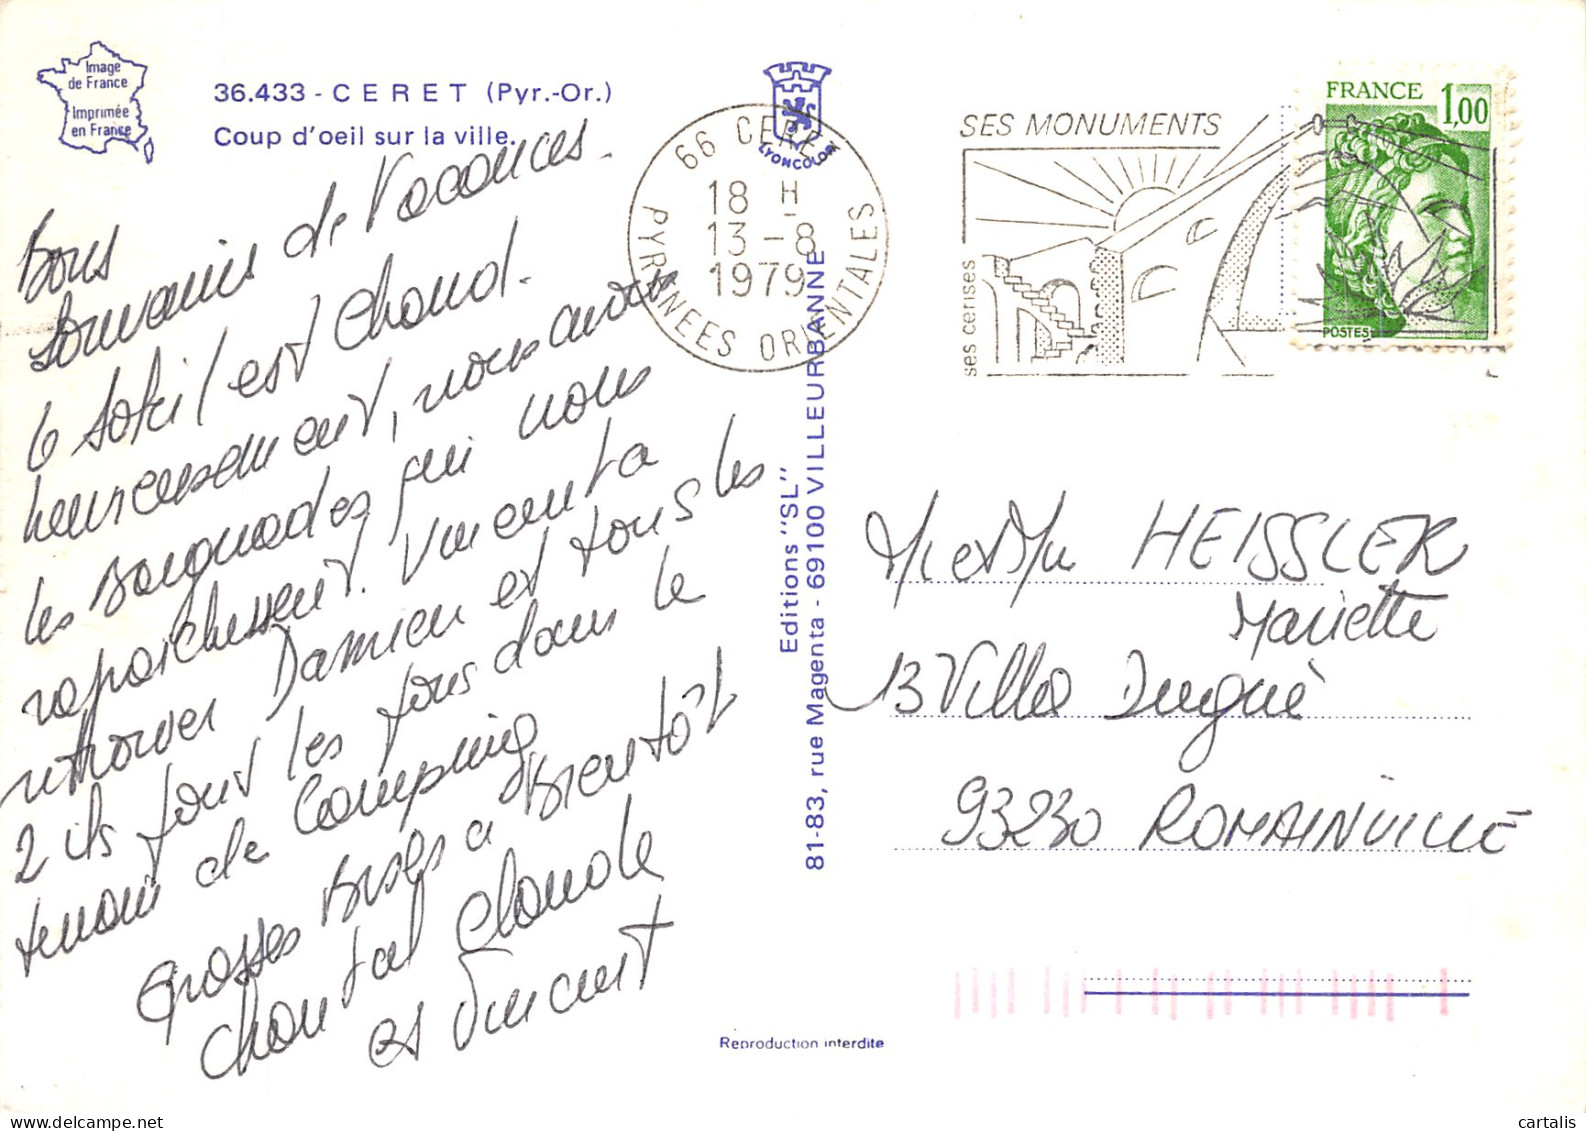 Image
de France
Imprimée
en France
36.433 - CERET (Pyr.-Or.)
Coup d'oeil sur la ville.
LYONCOLOR
66 CERET
18 H
13-8
1979
PYRENEES ORIENTALES
SES MONUMENTS
ses cerises
FRANCE 1,00
POSTES
Bons
souvenirs de Vacances.
le soleil est chaud.
heureusement, nous avons
les baignades qui nous
rafraichissent. Vincent a
retrouver Damien et tous les
2 ils font les fous dans le
terrain de Camping
Grosses Bises a Bientôt
Chantal Claude
et Vincent
Editions "SL"
81-83, rue Magenta - 69100 VILLEURBANNE
Mr et Mme HEISSLER
Mariette
13 Villa Dugué
93230 ROMAINVILLE
Reproduction interdite
cartalis